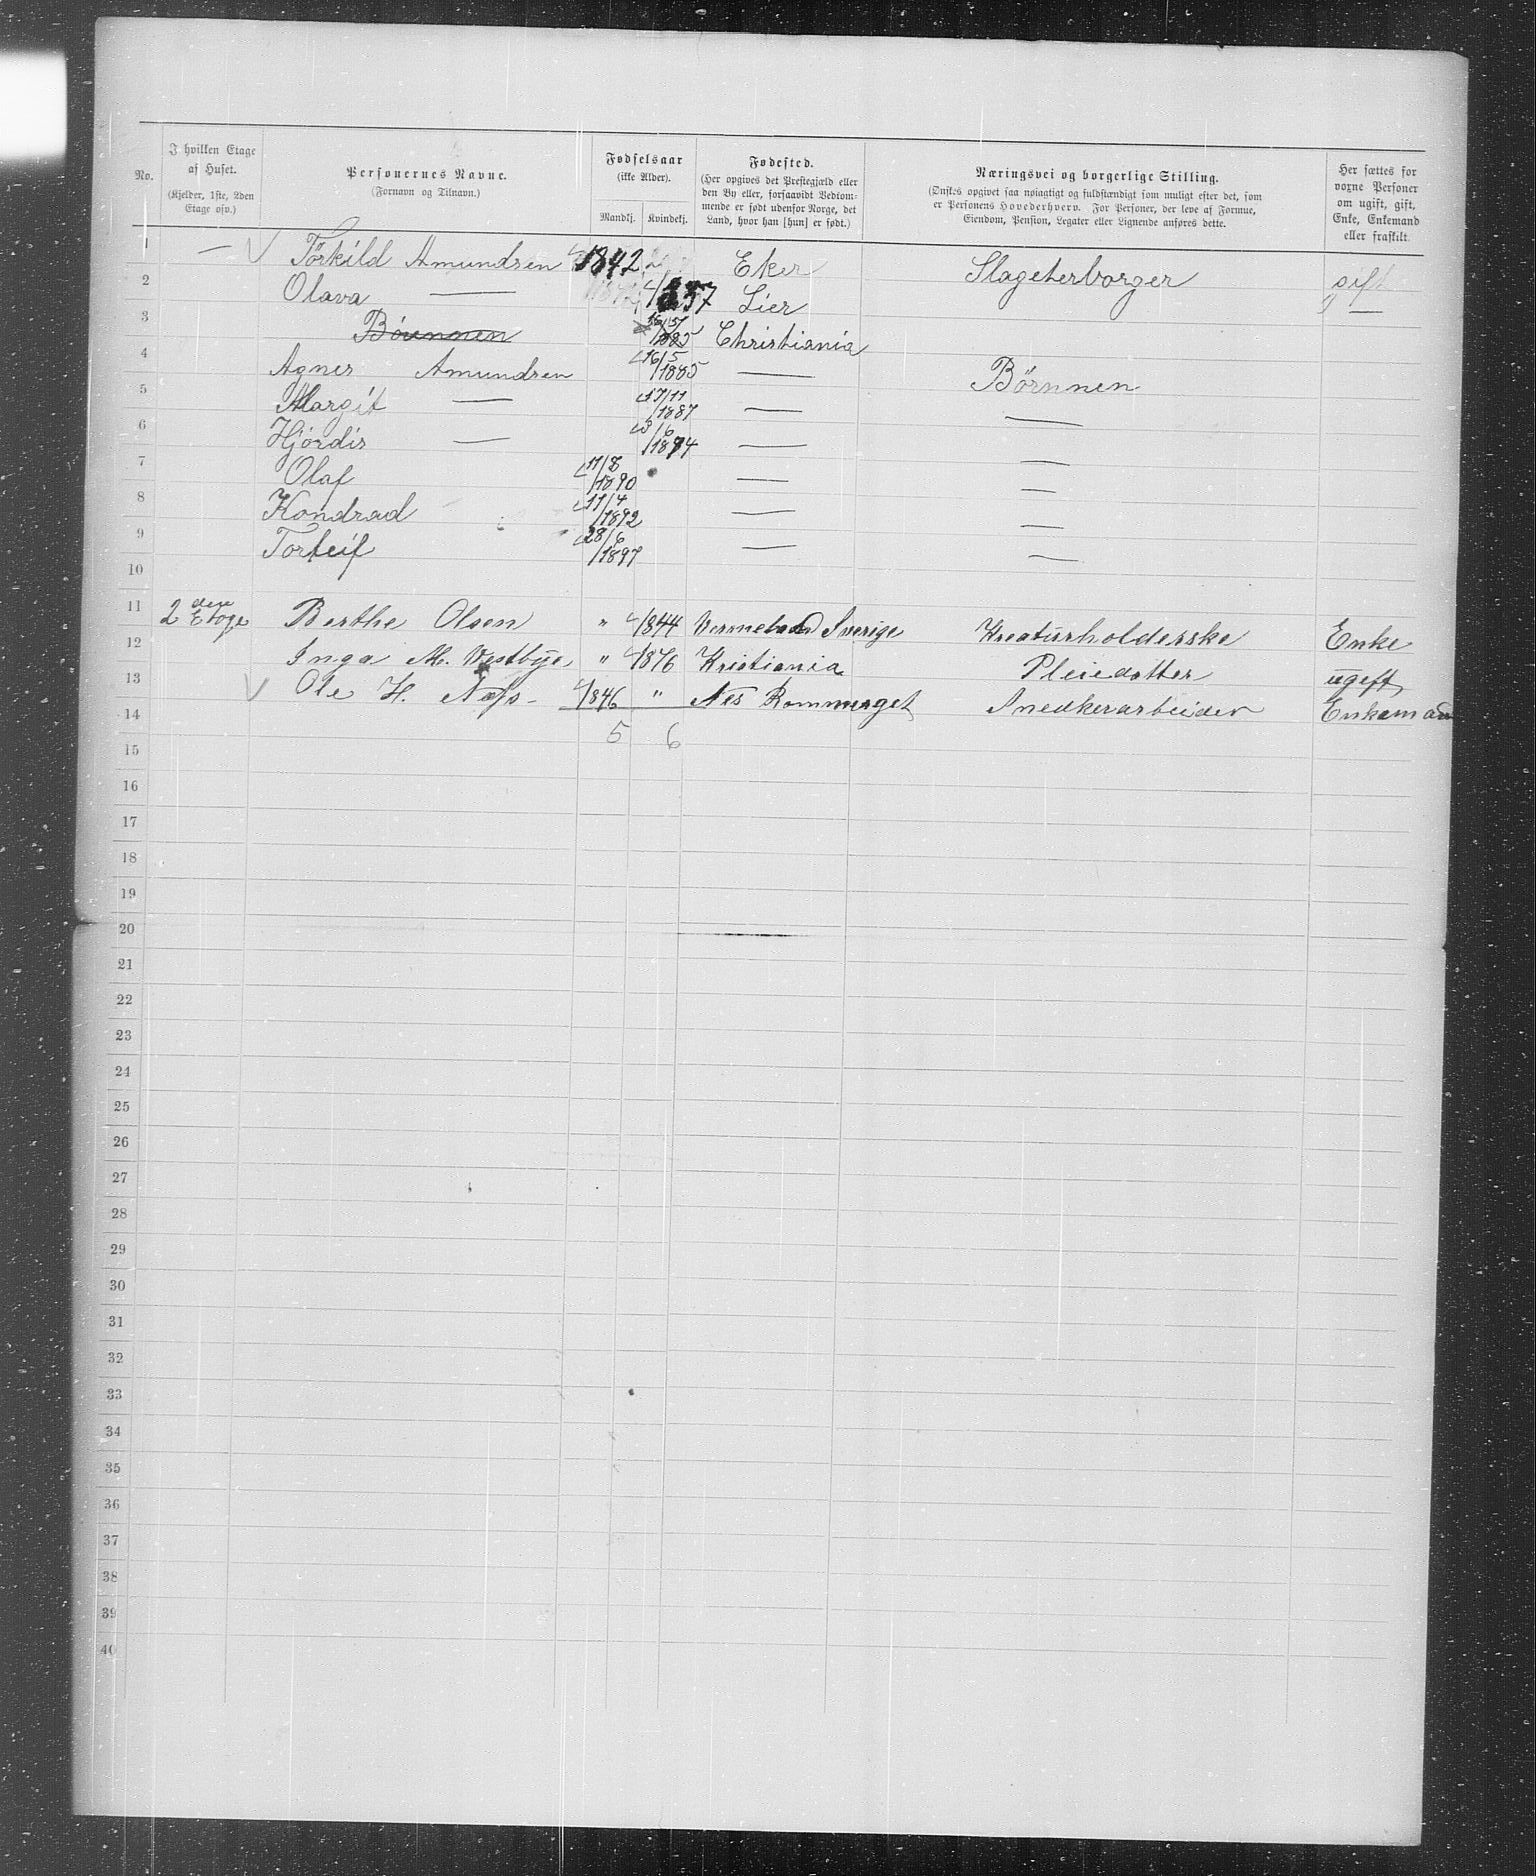 No.
I hvilken Etage
af Huset.
(Kjelder, 1ste, 2den
Etage osv.)
Personernes Navne.
(Fornavn og Tilnavn.)
Fødselsaar
(ikke Alder).
Mandkj. Kvindekj.
Fødested.
(Her opgives det Præstegjæld eller
den By eller, forsaavidt Vedkom-
mende er født udenfor Norge, det
Land, hvor han [hun] er født.)
Næringsvei og borgerlige Stilling.
(Ønskes opgivet saa nøiagtigt og fuldstændigt som muligt efter det, som
er Personens Hovederhverv. For Personer, der leve af Formue,
Eiendom, Pension, Legater eller Lignende anføres dette.
Her sættes for
voxne Personer
om ugift, gift,
Enke, Enkemand
eller fraskilt.
1 — Torkild Amundsen 1842 Eker Slagterborger gift
2 Olava — 1857 Lier —
3 Børnnen 16/5 1885 Christiania
4 Agnes Amundsen 16/5 1885 — Børnnen
5 Margit — 17/11 1887 — —
6 Hjördis — 3/6 1894 — —
7 Olaf 11/8 1890 — —
8 Kondrad 11/4 1892 — —
9 Torleif 28/6 1897 — —
10
11 2 den Etage Berthe Olsen " 1844 Vermeland Sverige Kreaturholderske Enke
12 Inga M. Westbye " 1876 Kristiania Pleiedatter ugeft
13 Ole H. Næss 1846 " Nes Rommerget Snedkerarbeider Enkemand
14 5 6
15
16
17
18
19
20
21
22
23
24
25
26
27
28
29
30
31
32
33
34
35
36
37
38
39
40